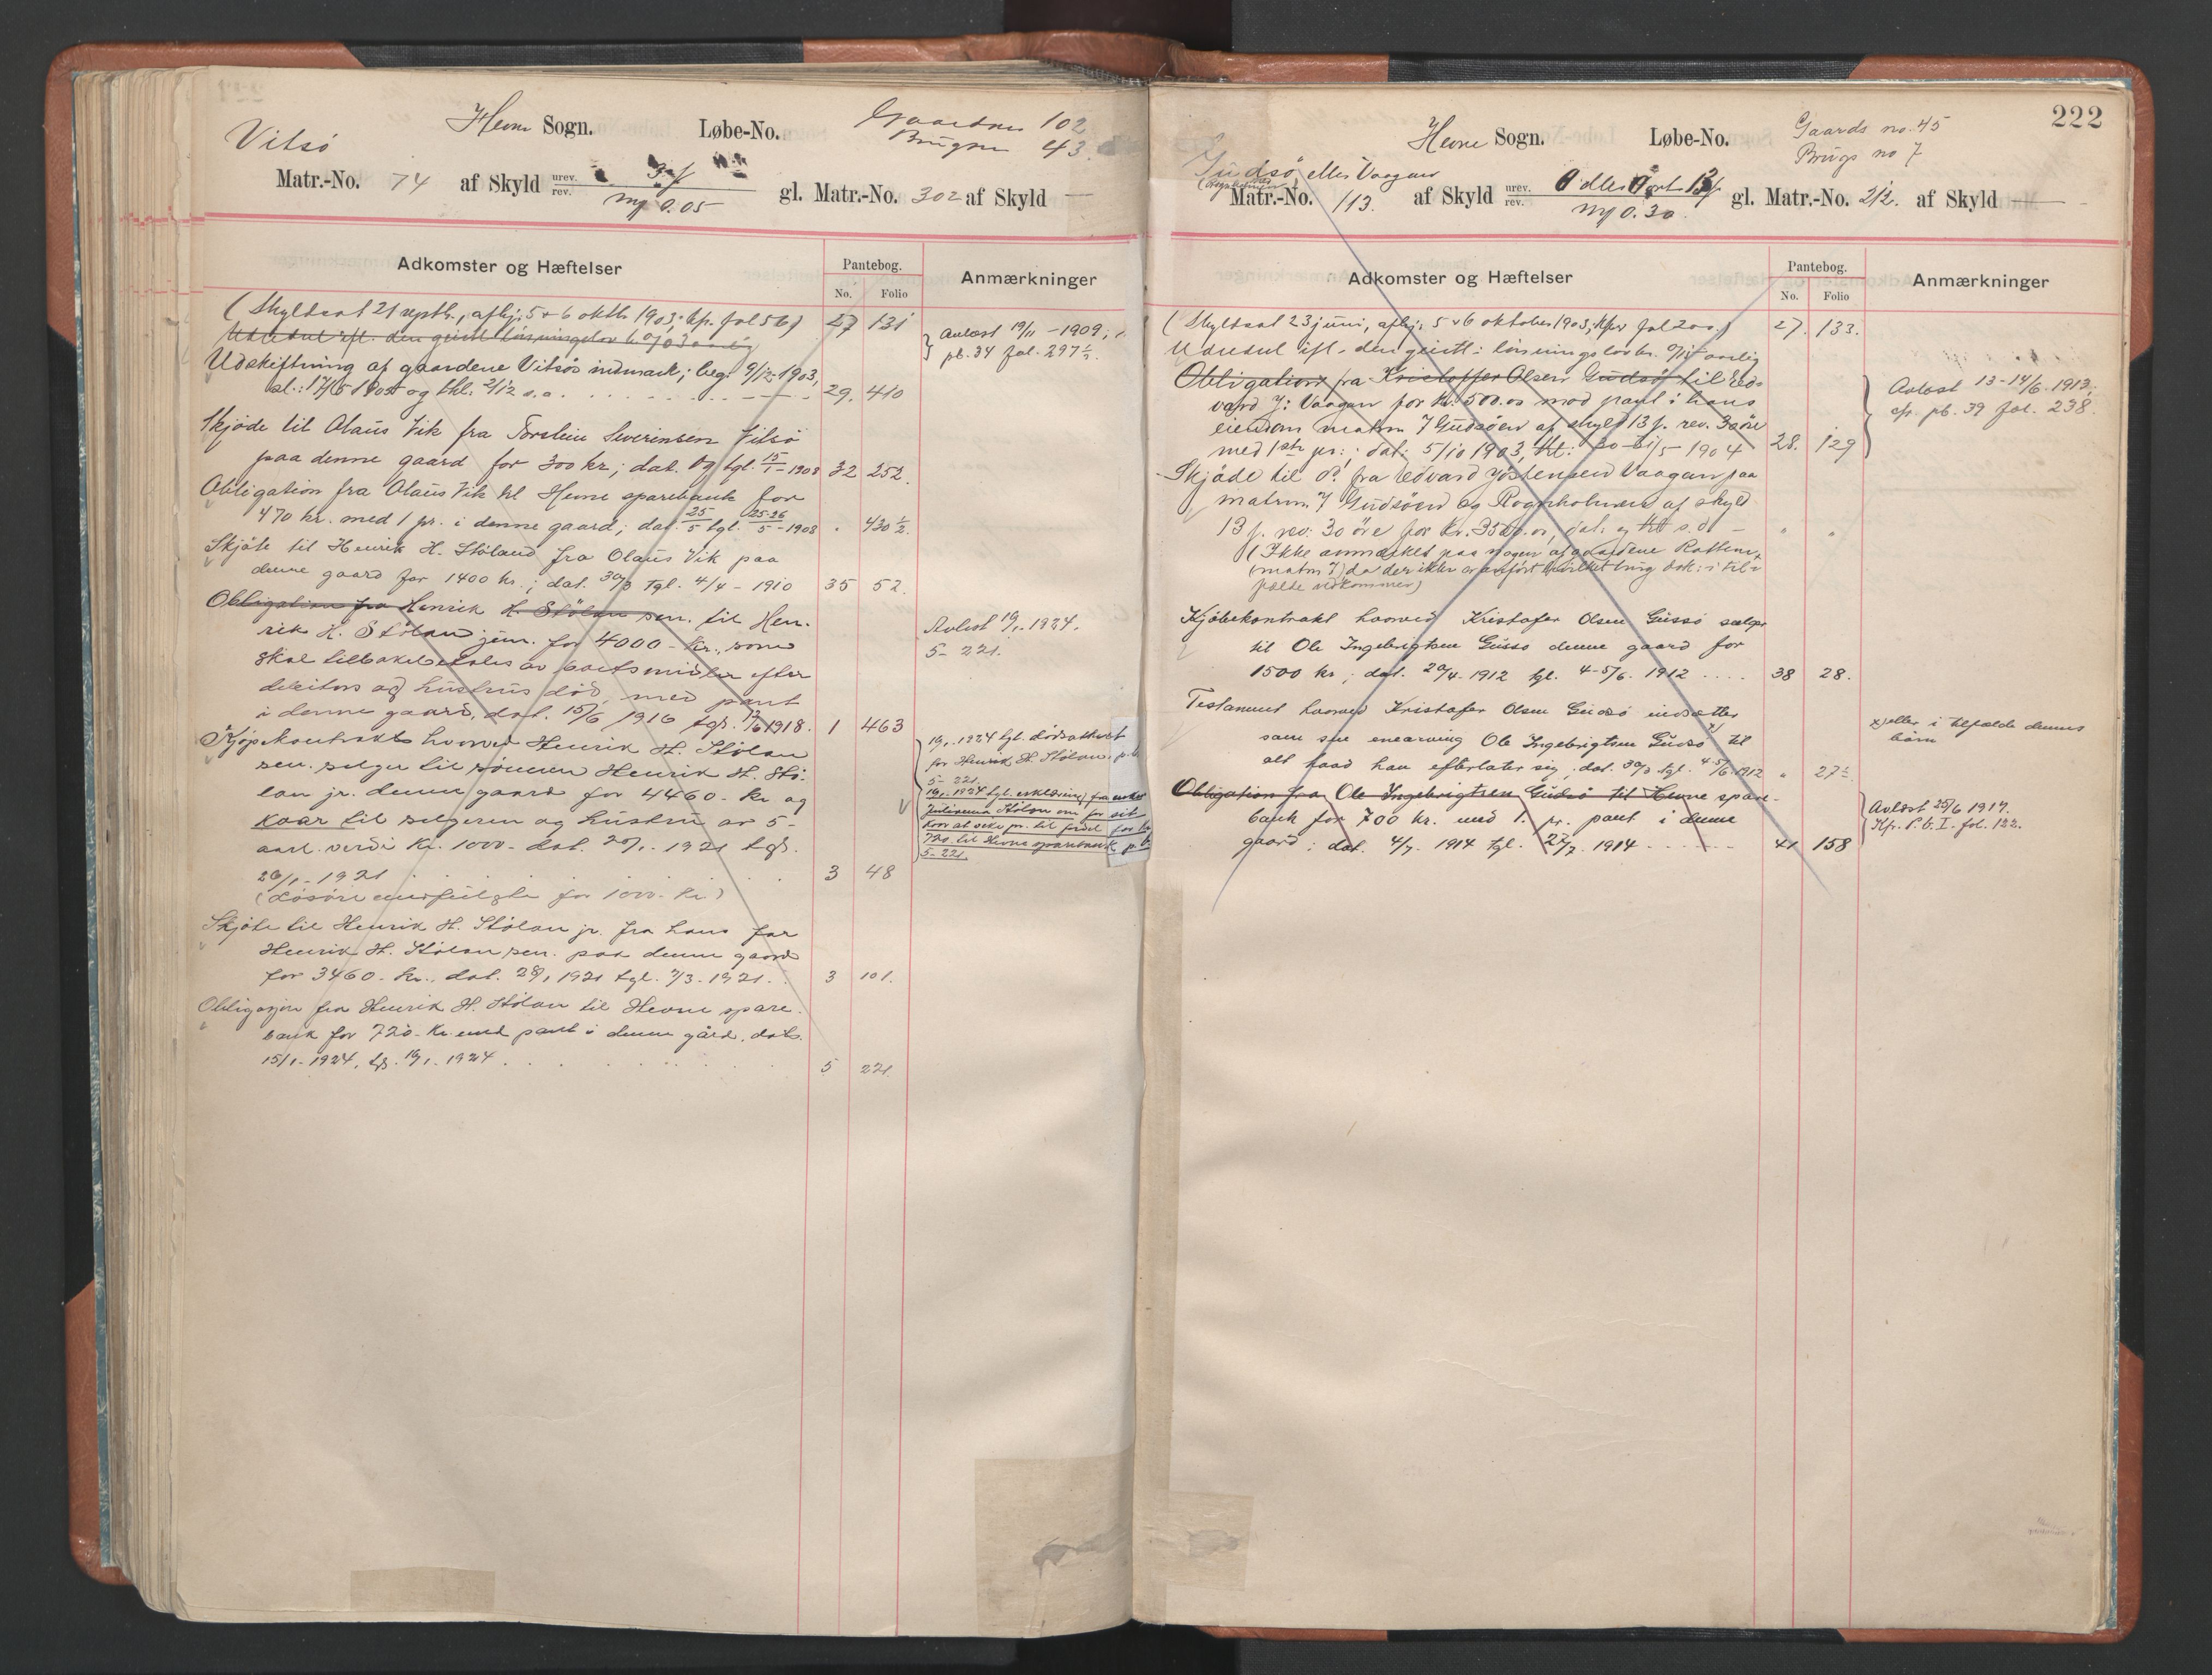 Vitsö
Hevne Sogn.
Løbe-No.
Gaardsno 102
Brugsno 43.
Matr.-No. 74 af Skyld urev. rev. 3 f
my 0.05
gl. Matr.-No. 302 af Skyld —
Adkomster og Hæftelser
Pantebog.
No. Folio
Anmærkninger
(Skyldsat 21 septb., afhj. 5 & 6 oktb. 1903; kfr. fol 56) 27 131
Udskiftning af gaardene Vitsös indmark; beg. 9/12-1903,
sl.: 17/6 1905 og thl. 2/12 s.a. 29. 410
Avlæst 19/11 - 1909;
pb. 34 fol. 297 1/2.
Skjöde til Olaus Vik fra Torstein Severinsen Vitsö
paa denne gaard for 300 kr; dat. og tgl. 15/1-1908 32 252.
Obligation fra Olaus Vik til Hevne sparebank for
470 kr. med 1 pr. i denne gaard; dat. 25/5 tgl. 25-26/5-1908 " 430 1/2.
Skjöte til Henrik H. Stöland fra Olaus Vik paa
denne gaard for 1400 kr.; dat. 30/3 tgl. 4/4 - 1910 35 52.
Obligation fra Henrik H. Stölan sen. til Hen-
rik H. Stölan jun. for 4000 - Kr., som
skal tilbakebetales av boets midler efter
debitors og hustrus död, med pant
i denne gaard, dat. 15/6 1916 tgl. 17/6 1918. 1 463
Avlest 19/1. 1924.
5- 221.
Kjöpekontrakt hvorved Henrik H. Stölan
sen. selger til sönnen Henrik H. Stö-
lan jr. denne gaard for 4460- Kr og
kaar til selgeren og hustru av 5-
aarl. verdi Kr. 1000- dat. 29/1. 1921 tgl.
26/1 - 1921 3 48
(Lösöre medfulgte for 1000- Kr.)
19/1. 1924 tgl. dödsattest
for Henrik H. Stölan, p.b.
5- 221.
19/1. 1924 tgl. erklæring fra enken
Stölan om for sit
kor at vike pr. til fordel for
720 til Hevne sparebank p.b
5- 221.
Skjöte til Henrik H. Stölan jr. fra hans far
Henrik H. Stölan sen. paa denne gaard
for 3460- kr., dat. 28/1 1921 tgl. 7/3. 1921. 3 101.
Obligasjon fra Henrik H. Stölan til Hevne spare-
bank for 720- Kr med pant i denne gård. dat.
15/1-1924, tgl. 19/1. 1924 5 221.
222
Hevne Sogn.
Løbe-No.
Gaards no. 45
Brugs no 7
Gudsö eller Vaagan
Matr.-No. 113. af Skyld urev. rev. 0 dler 0 ort 13 f
my 0.30.
gl. Matr.-No. 212. af Skyld —
Adkomster og Hæftelser
Pantebog.
No. Folio
Anmærkninger
(Skyldsat 23 juni, afhj: 5 & 6 oktober 1903; kfr fol 200.) 27. 133.
Obligation fra Kristoffer Olsen Gudsö til Ed-
vard J: Vaagan for kr. 500.00 mod pant i hans
eiendom matrn 7 Gudsöen af skyld 13 f. rev. 30 öre
med 1ste pr.; dat: 5/10 1903, tht: 30-31/5-1904 28. 129
Avlæst 13-14/6. 1913,
cfr. pb. 39 fol. 238.
Skjöde til do. fra Edvard Jöstensen Vaagan paa
matrn. 7 Gudsöen og Rognholmen af skyld
13 f. rev: 30 öre for Kr. 3500.00, dat: og tht s.d. - " "
(Ikke anmærket paa nogen af gaardene
(matrn 7) da der ikke er anfört hvilket brug dok: i til-
fælde vedkommer)
Kjöbekontrakt hvorved Kristofer Olsen Gusö sælger
til Ole Ingebrigtsen Gusso denne gaard for
1500 kr; dat. 20/4. 1912 tgl. 4-5/6. 1912 .... 38 28.
Testament hvorved Kristofer Olsen Gudsö indsætter
som sin enearving Ole Ingebrigtsen Gudsö x) til
alt hvad han efterlater sig, dat. 30/3 tgl. 4-5/6. 1912 " 27 1/2
x) eller i tilfælde dennes
börn
Obligation fra Ole Ingebrigtsen Gudsö til Hevne spare-
bank for 700 kr. med 1. pr. pant i denne
gaard; dat. 4/7. 1914 tgl. 27/7. 1914 41 158
Avlæst 25/6 1917.
Kfr. P.b. I. fol. 122.